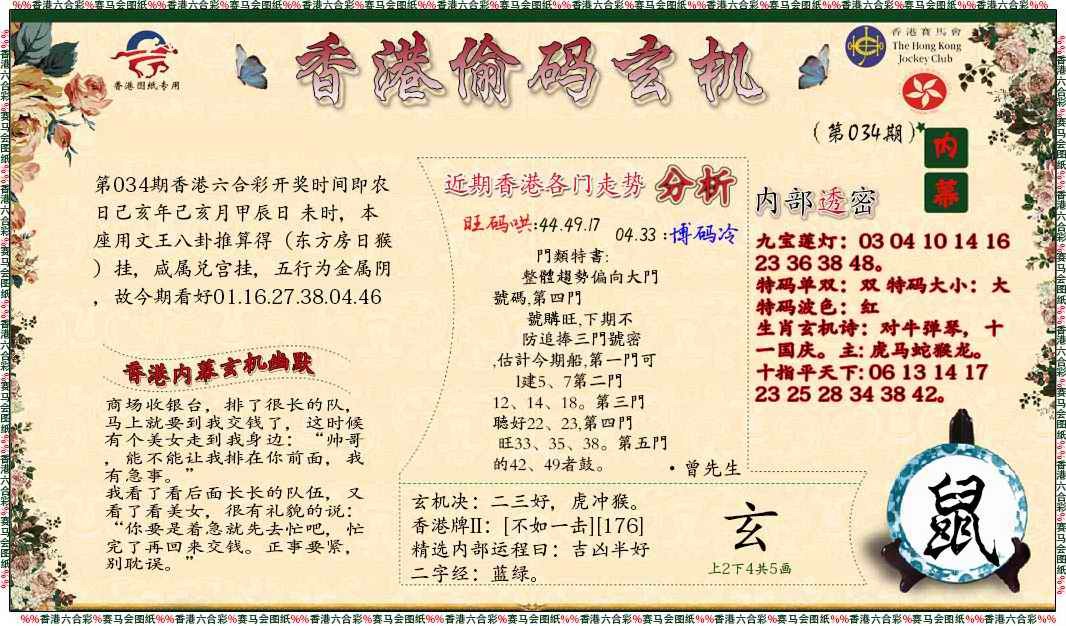 %%香港六合彩%赛马会图纸%%香港六合彩%赛马会图纸%%香港六合彩%赛马会图纸%%香港六合彩%赛马会图纸%%香港六合彩%赛马会图纸%%香港六合彩%%
香港图纸专用
香港偷码玄机
香港賽馬會
The Hong Kong
Jockey Club
(第034期)
内幕
第034期香港六合彩开奖时间即农
日己亥年己亥月甲辰日 未时，本
座用文王八卦推算得（东方房日猴
）挂，咸属兑宫挂，五行为金属阴
，故今期看好01.16.27.38.04.46
香港内幕玄机幽默
商场收银台，排了很长的队，
马上就要到我交钱了，这时候
有个美女走到我身边：“帅哥
，能不能让我排在你前面，我
有急事。”
我看了看后面长长的队伍，又
看了看美女，很有礼貌的说：
“你要是着急就先去忙吧，忙
完了再回来交钱。正事要紧，
别耽误。”
近期香港各门走势 分析
旺码哄:44.49.17
04.33 :博码冷
門類特書:
整體趨勢偏向大門
號碼,第四門
號購旺,下期不
防追捧三門號密
,估計今期船,第一門可
1建5、7第二門
12、14、18。第三門
聽好22、23,第四門
旺33、35、38。第五門
的42、49者鼓。
·曾先生
内部透密
九宝莲灯：03 04 10 14 16
23 36 38 48。
特码单双：双 特码大小：大
特码波色：红
生肖玄机诗：对牛弹琴，十
一国庆。主: 虎马蛇猴龙。
十指平天下: 06 13 14 17
23 25 28 34 38 42。
玄机决：二三好，虎冲猴。
香港牌II：[不如一击][176]
精选内部运程日：吉凶半好
二字经：蓝绿。
玄
上2下4共5画
鼠
%%香港六合彩%赛马会图纸%%香港六合彩%赛马会图纸%%香港六合彩%赛马会图纸%%香港六合彩%赛马会图纸%%香港六合彩%赛马会图纸%%香港六合彩%%